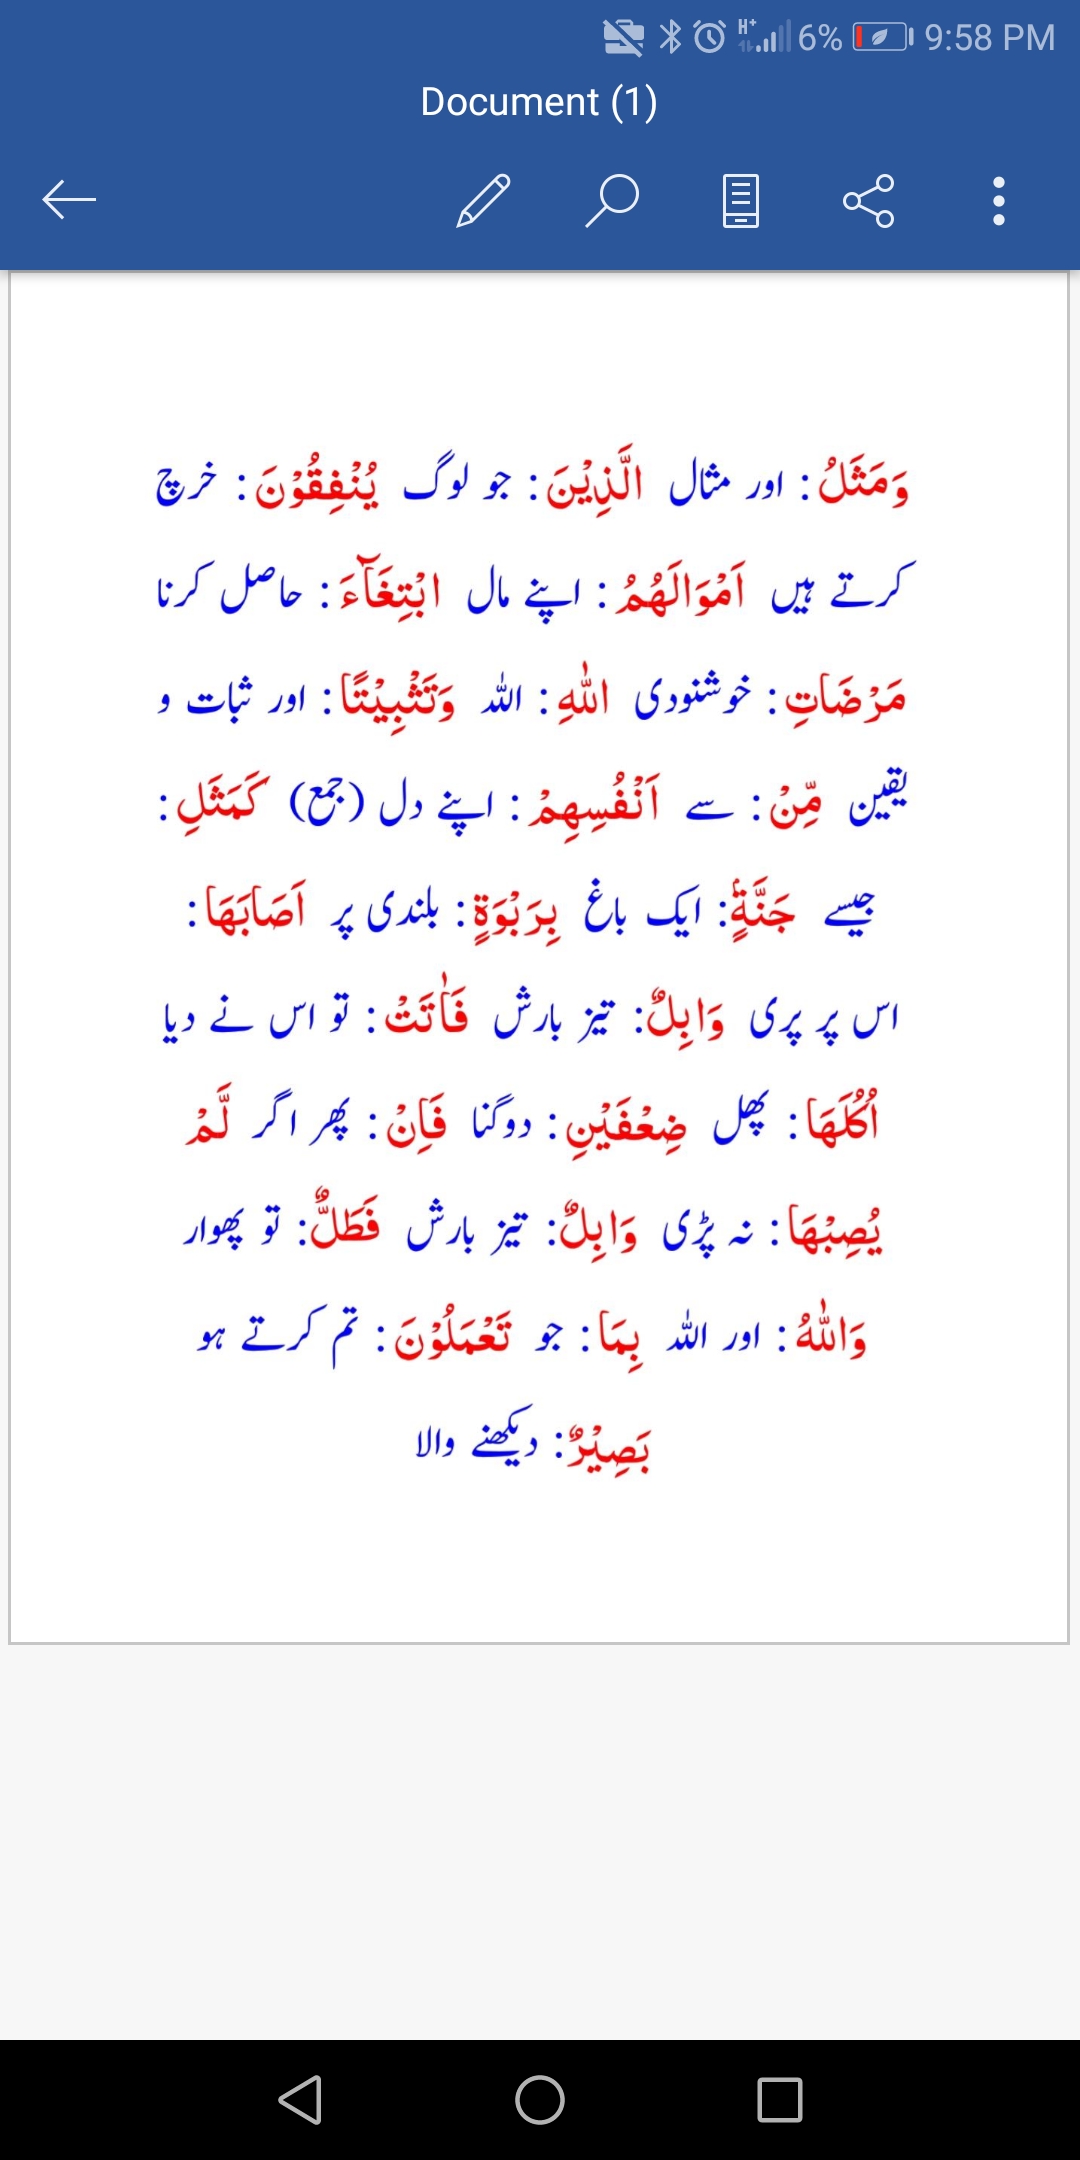 H+ 6% 9:58 PM
Document (1)
وَمَثَلُ : اور مثال الَّذِيْنَ : جو لوگ يُنْفِقُوْنَ : خرچ
کرتے ہیں اَمْوَالَھُمُ : اپنے مال ابْتِغَآءَ : حاصل کرنا
مَرْضَاتِ : خوشنودی اللّٰهِ : اللہ وَتَثْبِيْتًا : اور ثبات و
یقین مِّنْ : سے اَنْفُسِهِمْ : اپنے دل (جمع) كَمَثَلِ :
جیسے جَنَّةٍۢ : ایک باغ بِرَبْوَةٍ : بلندی پر اَصَابَهَا :
اس پر پری وَابِلٌ : تیز بارش فَاٰ تَتْ : تو اس نے دیا
اُكُلَهَا : پھل ضِعْفَيْنِ : دوگنا فَاِنْ : پھر اگر لَّمْ
يُصِبْهَا : نہ پڑی وَابِلٌ : تیز بارش فَطَلٌّ : تو پھوار
وَاللّٰهُ : اور اللہ بِمَا : جو تَعْمَلُوْنَ : تم کرتے ہو
بَصِيْرٌ : دیکھنے والا